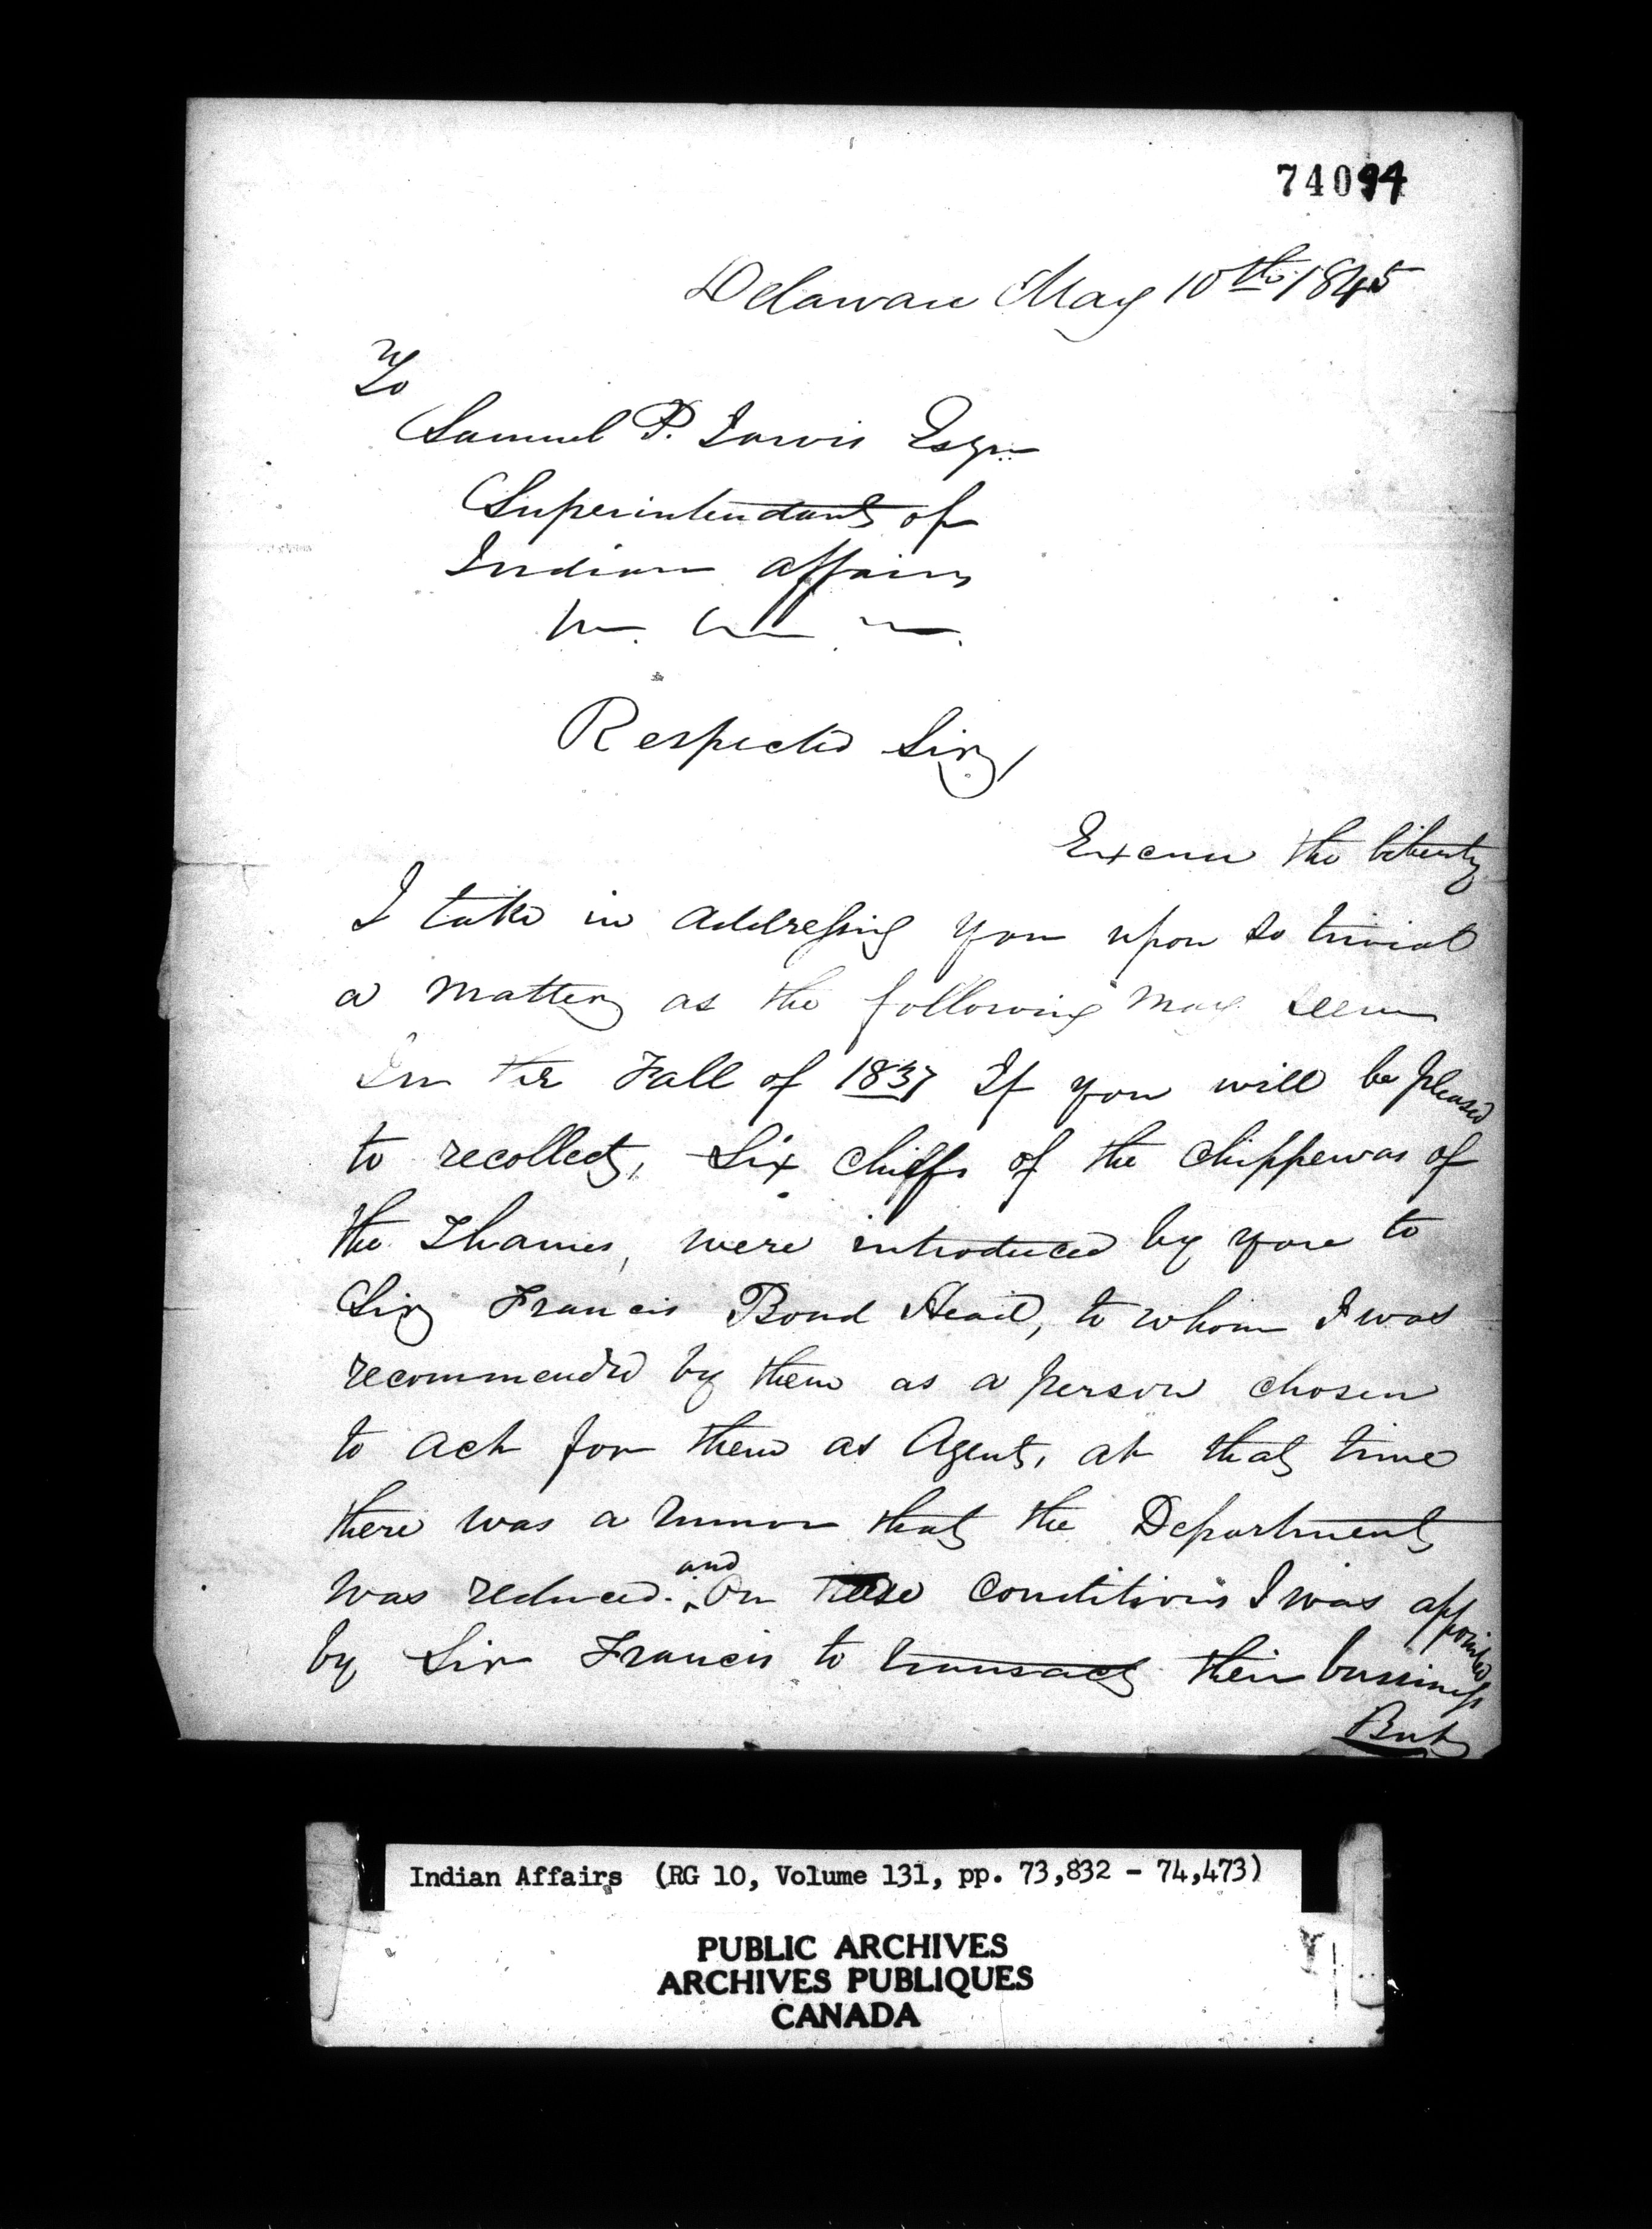 74094
Delaware May 10th 1845
To
Samuel P. Jarvis Esqr
Superintendant of
Indian affairs
Respected Sir,
Excuse the liberty
I take in addressing you upon so trivial
a matter as the following may seem
In the Fall of 1837 If you will be pleased
to recollect, Six chiffs of the chippewas of
the Thames, were introduced by you to
Sir Francis Bond Head, to whom I was
recommended by them as a person chosen
to act for them as Agent, at that time
there was a rumor that the Department
was reduced. and On these conditions I was appointed
by Sir Francis to transact their bussiness
But
Indian Affairs (RG 10, Volume 131, pp. 73,832 - 74,473)
PUBLIC ARCHIVES
ARCHIVES PUBLIQUES
CANADA